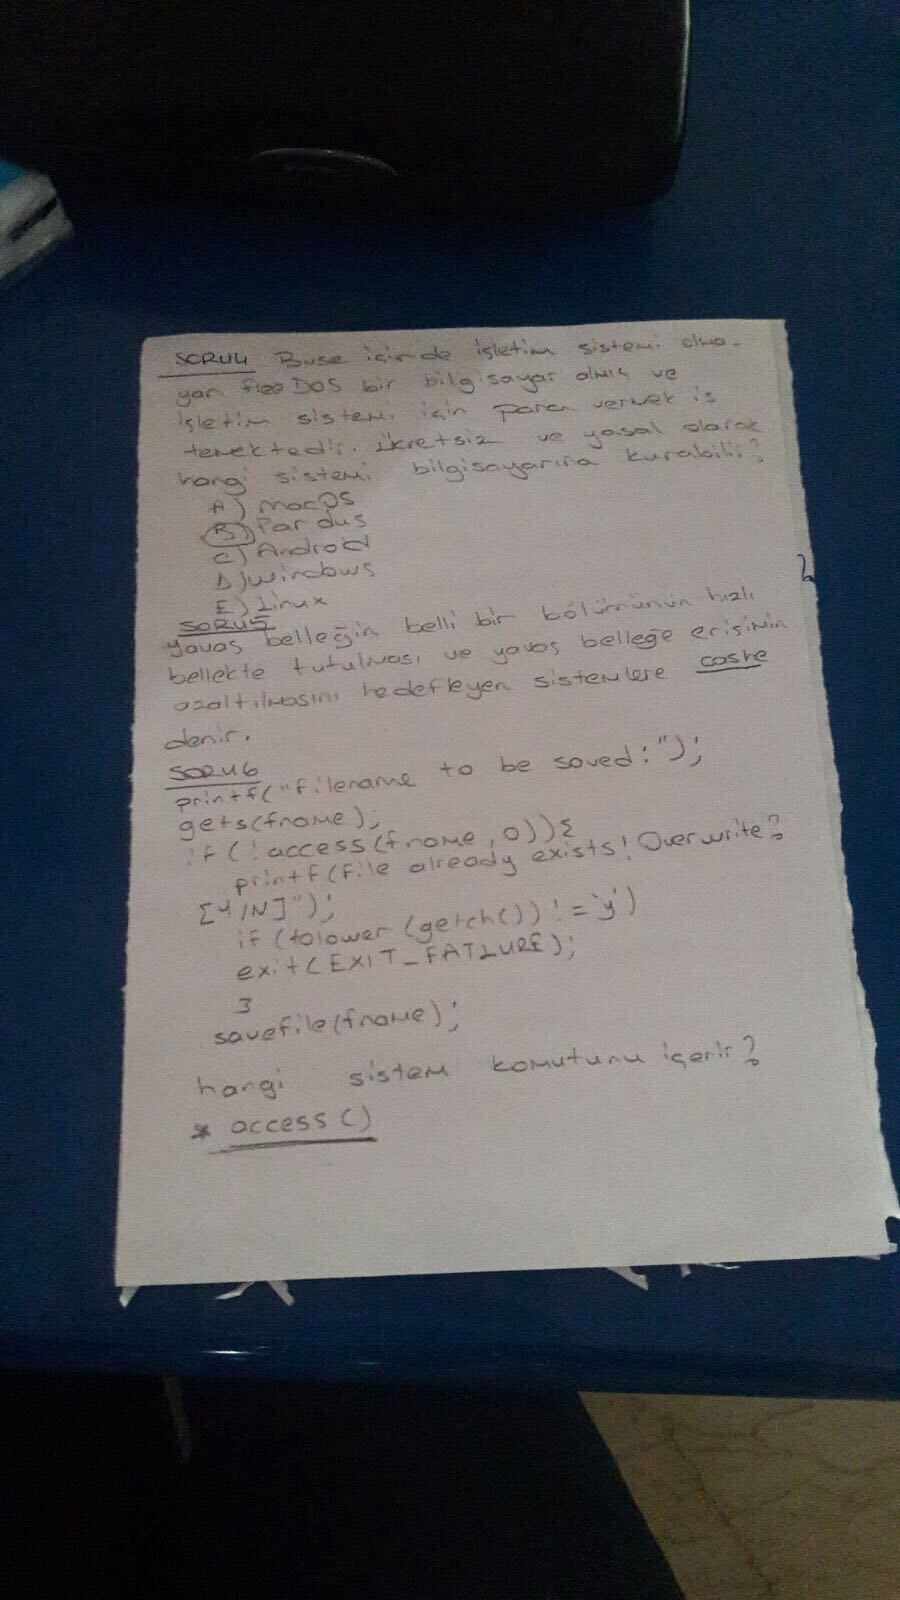 SORU4 Buse içinde işletim sistemi olma-
yan freeDOS bir bilgisayar almış ve
işletim sistemi için para vermek is
temektedir. ücretsiz ve yasal olarak
hangi sistemi bilgisayarına kurabilir?
A) macOS
B) Pardus
C) Android
D) windows
E) Linux
SORU5
yavaş belleğin belli bir bölümünün hızlı
bellekte tutulması ve yavaş belleğe erişimin
azaltılmasını hedefleyen sistemlere cashe
denir.
SORU6
printf("filename to be saved:");
gets(fname);
if(!access(fname,0)){
printf(file already exists! Overwrite?
[Y/N]");
if (tolower(getch()) != 'y')
exit(EXIT_FAILURE);
}
savefile(fname);
hangi sistem komutunu içerir?
* access()